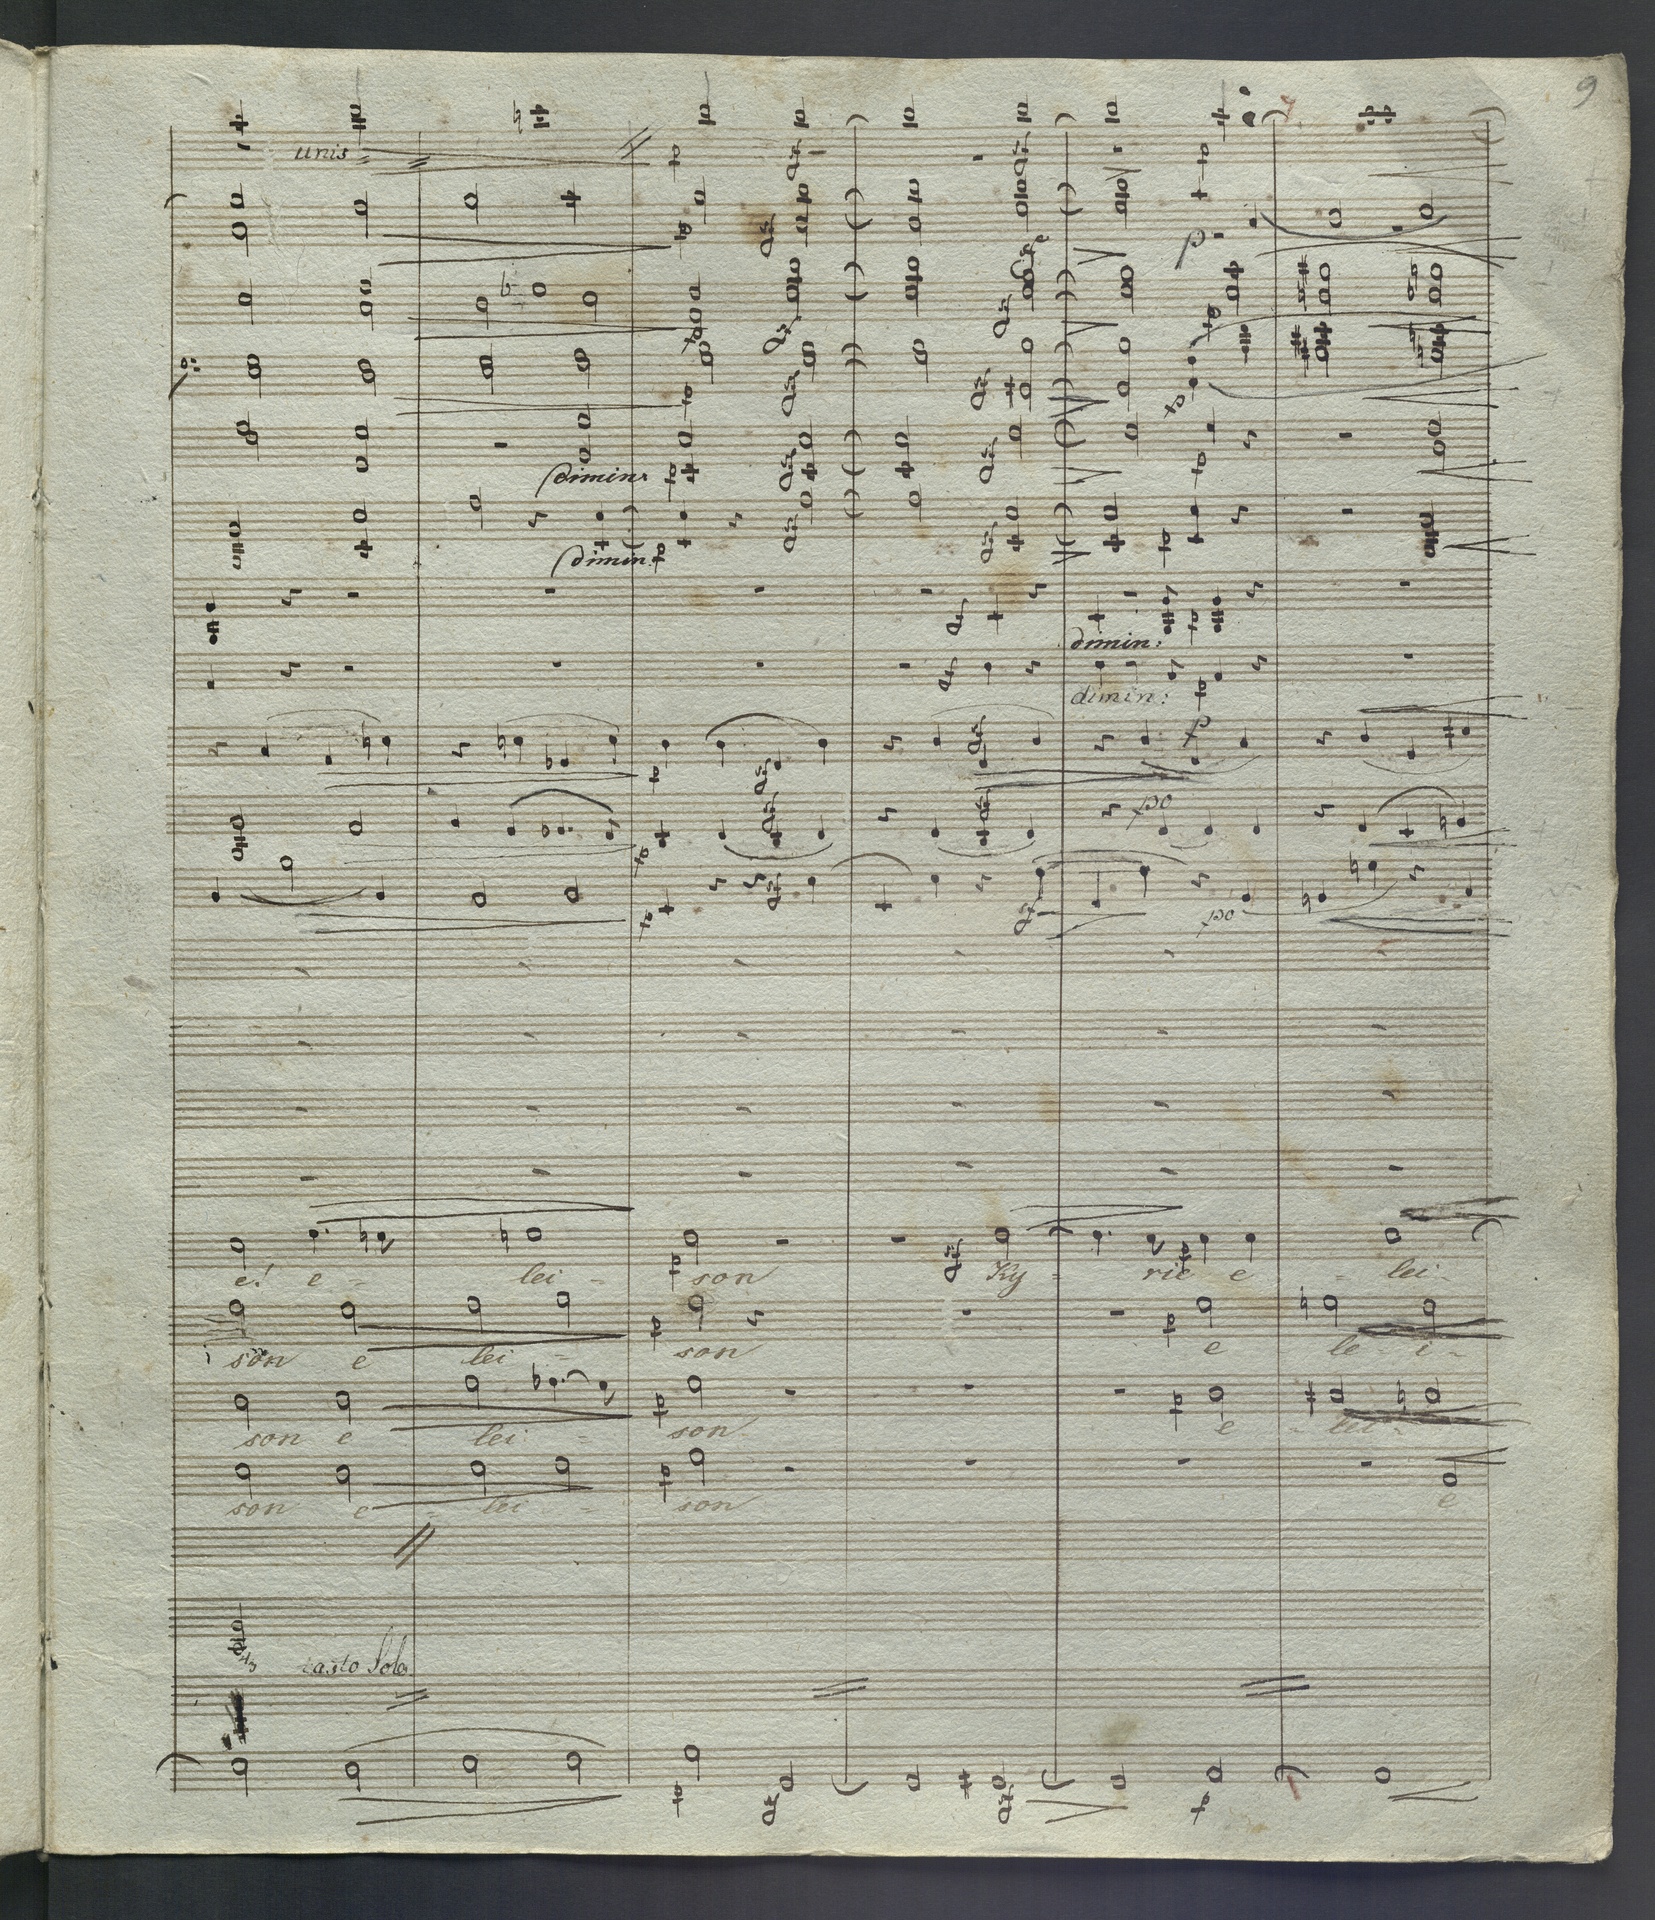 9
unis
p
dimin:
dimin:
dimin:
dimin:
p
po
po
e! e - lei - son Ky - rie e - lei -
son e lei - son e le - i -
son e lei - son e - lei -
son e - lei - son e
tasto Solo